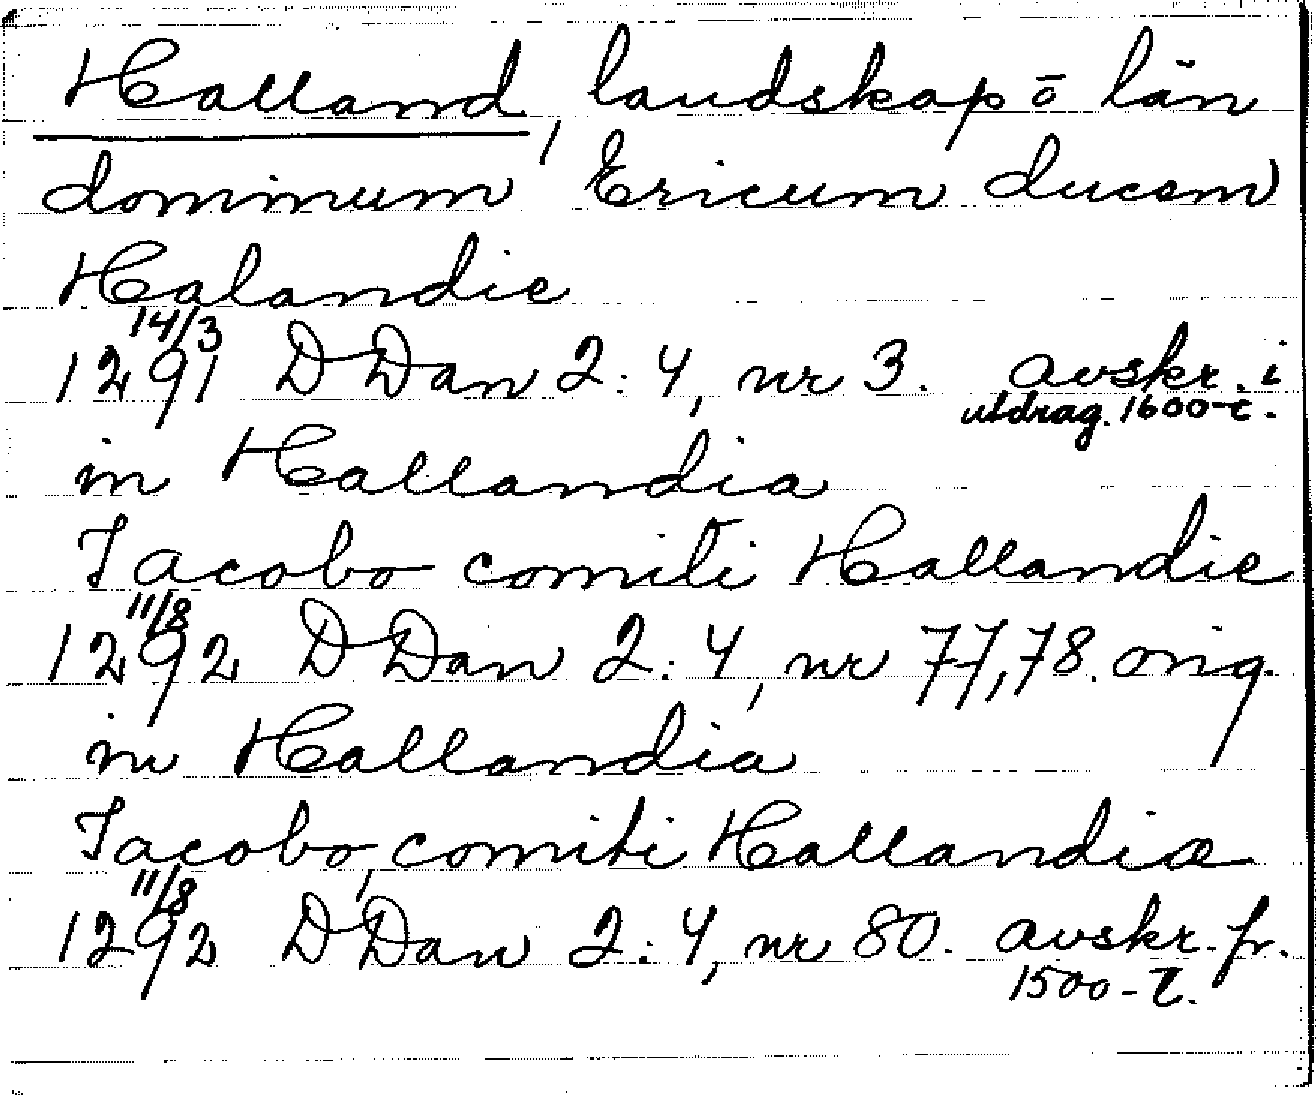 Halland, landskap o län
dominum Ericum ducem
Halandie
14/3
1291 DDan 2:4, nr 3. avskr. i
utdrag. 1600-t.
in Hallandia
Jacobo comiti Hallandie
11/8
1292 DDan 2:4, nr 77, 78. orig.
in Hallandia
Jacobo, comiti Hallandiæ
11/8
1292 DDan 2:4, nr 80. avskr. fr.
1500-t.